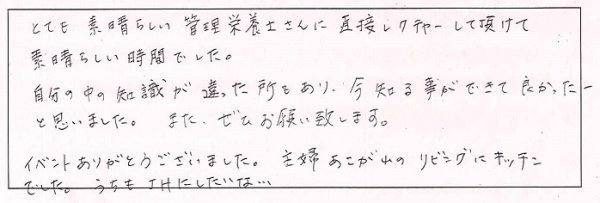 とても 素晴らしい 管理栄養士さんに 直接レクチャーして頂けて
素晴らしい時間でした。
自分の中の知識が違った所もあり、今知る事ができて良かったー
と思いました。 また、ぜひお願い致します。
イベントありがとうございました。 主婦あこがれの リビングにキッチン
でした。 うちも IHにしたいな…